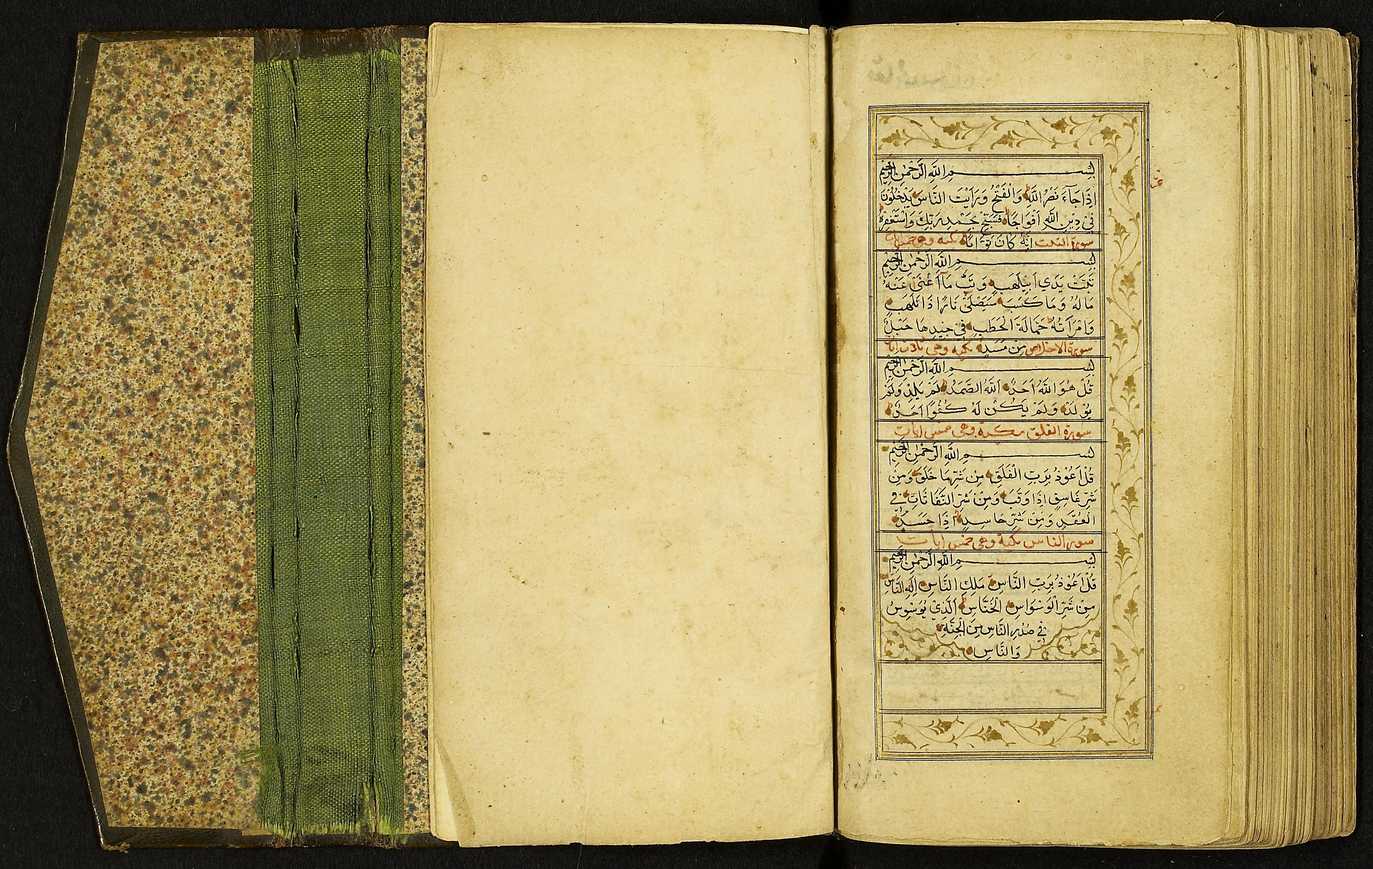 بسم الله الرحمن الرحيم
اذا جاء نصر الله والفتح ورايت الناس يدخلون
في دين الله افواجا فسبح بحمد ربك واستغفره
سورة التبت انه كان توابا مكية وهي خمس ايات
بسم الله الرحمن الرحيم
تبت يدا ابي لهب وتب ما اغنى عنه
ماله وما كسب سيصلى نارا ذات لهب
وامراته حمالة الحطب في جيدها حبل
سورة الاخلاص من مسد مكية وهي ايات
بسم الله الرحمن الرحيم
قُلْ هُوَ اللَّهُ اَحَدٌ اَللَّهُ الصَّمَدُ لَمْ يَلِدْ وَلَمْ
يُولَدْ وَلَمْ يَكُنْ لَهُ كُفُوًا اَحَدٌ
سورة الفلق مكية وهي خمس ايات
بسم الله الرحمن الرحيم
قُلْ اَعُوذُ بِرَبِّ الْفَلَقِ مِنْ شَرِّ مَا خَلَقَ وَمِنْ
شَرِّ غَاسِقٍ اِذَا وَقَبَ وَمِنْ شَرِّ النَّفَّاثَاتِ فِي
الْعُقَدِ وَمِنْ شَرِّ حَاسِدٍ اِذَا حَسَدَ
سورة الناس مكية وهي خمس ايات
بسم الله الرحمن الرحيم
قُلْ اَعُوذُ بِرَبِّ النَّاسِ مَلِكِ النَّاسِ اِلٰهِ النَّاسِ
مِنْ شَرِّ الْوَسْوَاسِ الْخَنَّاسِ اَلَّذِي يُوَسْوِسُ
فِي صُدُورِ النَّاسِ مِنَ الْجِنَّةِ
وَالنَّاسِ